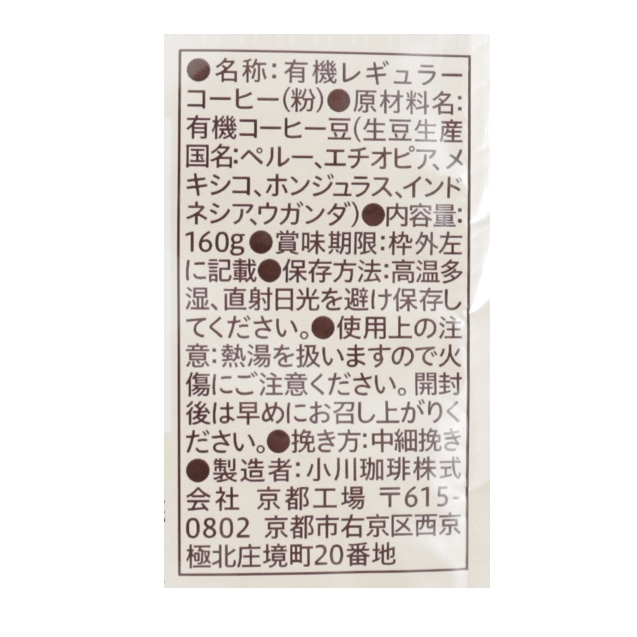 ●名称：有機レギュラー
コーヒー(粉)●原材料名：
有機コーヒー豆(生豆生産
国名：ペルー、エチオピア、メ
キシコ、ホンジュラス、インド
ネシア、ウガンダ)●内容量：
160g●賞味期限：枠外左
に記載●保存方法：高温多
湿、直射日光を避け保存し
てください。●使用上の注
意：熱湯を扱いますので火
傷にご注意ください。開封
後は早めにお召し上がりく
ださい。●挽き方：中細挽き
●製造者：小川珈琲株式
会社 京都工場 〒615-
0802 京都市右京区西京
極北庄境町20番地